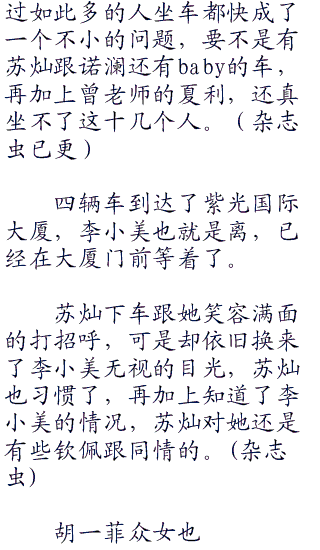 过如此多的人坐车都快成了
一个不小的问题，要不是有
苏灿跟诺澜还有baby的车，
再加上曾老师的夏利，还真
坐不了这十几个人。（杂志
虫已更）
四辆车到达了紫光国际
大厦，李小美也就是离，已
经在大厦门前等着了。
苏灿下车跟她笑容满面
的打招呼，可是却依旧换来
了李小美无视的目光，苏灿
也习惯了，再加上知道了李
小美的情况，苏灿对她还是
有些钦佩跟同情的。(杂志
虫)
胡一菲众女也